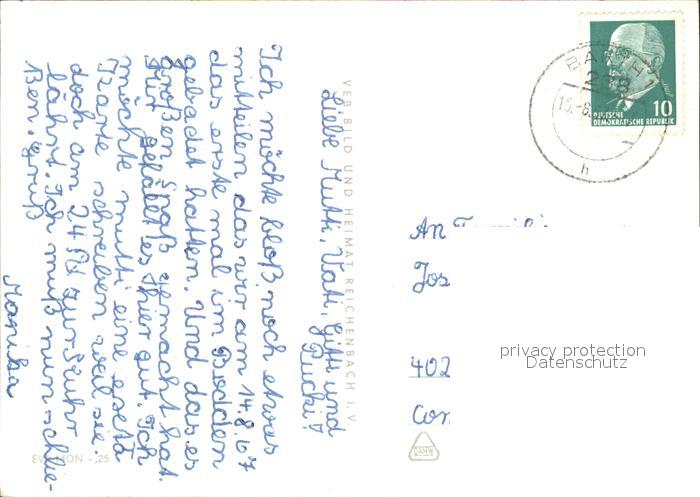 Liebe Mutti, Vati, Gitti und
Pucki!
Ich möchte bloß noch etwas
mitteilen das wir am 14.8.67
das erste mal im Bodden
gebadet hatten. Und das es
großen Spaß gemacht hat.
Mir gefällt es hier gut. Ich
möchte mutti eine extra
Karte schreiben weil sie
doch am 24. zur Kuhr
fährt. Ich muß nun schlie-
ßen. Gruß
Marika
VEB BILD UND HEIMAT REICHENBACH I. V.
BARTH 1
15.-8.
h
10
DEUTSCHE
DEMOKRATISCHE REPUBLIK
An
Jos
402
privacy protection
Datenschutz